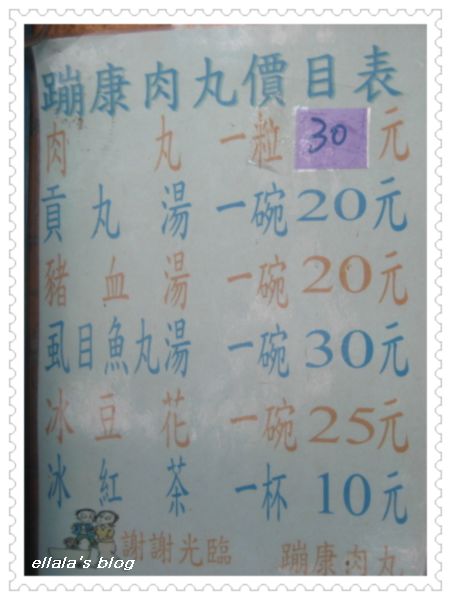 蹦康肉丸價目表
肉丸一粒30元
貢丸湯一碗20元
豬血湯一碗20元
虱目魚丸湯一碗30元
冰豆花一碗25元
冰紅茶一杯10元
謝謝光臨 蹦康肉丸
ellala's blog